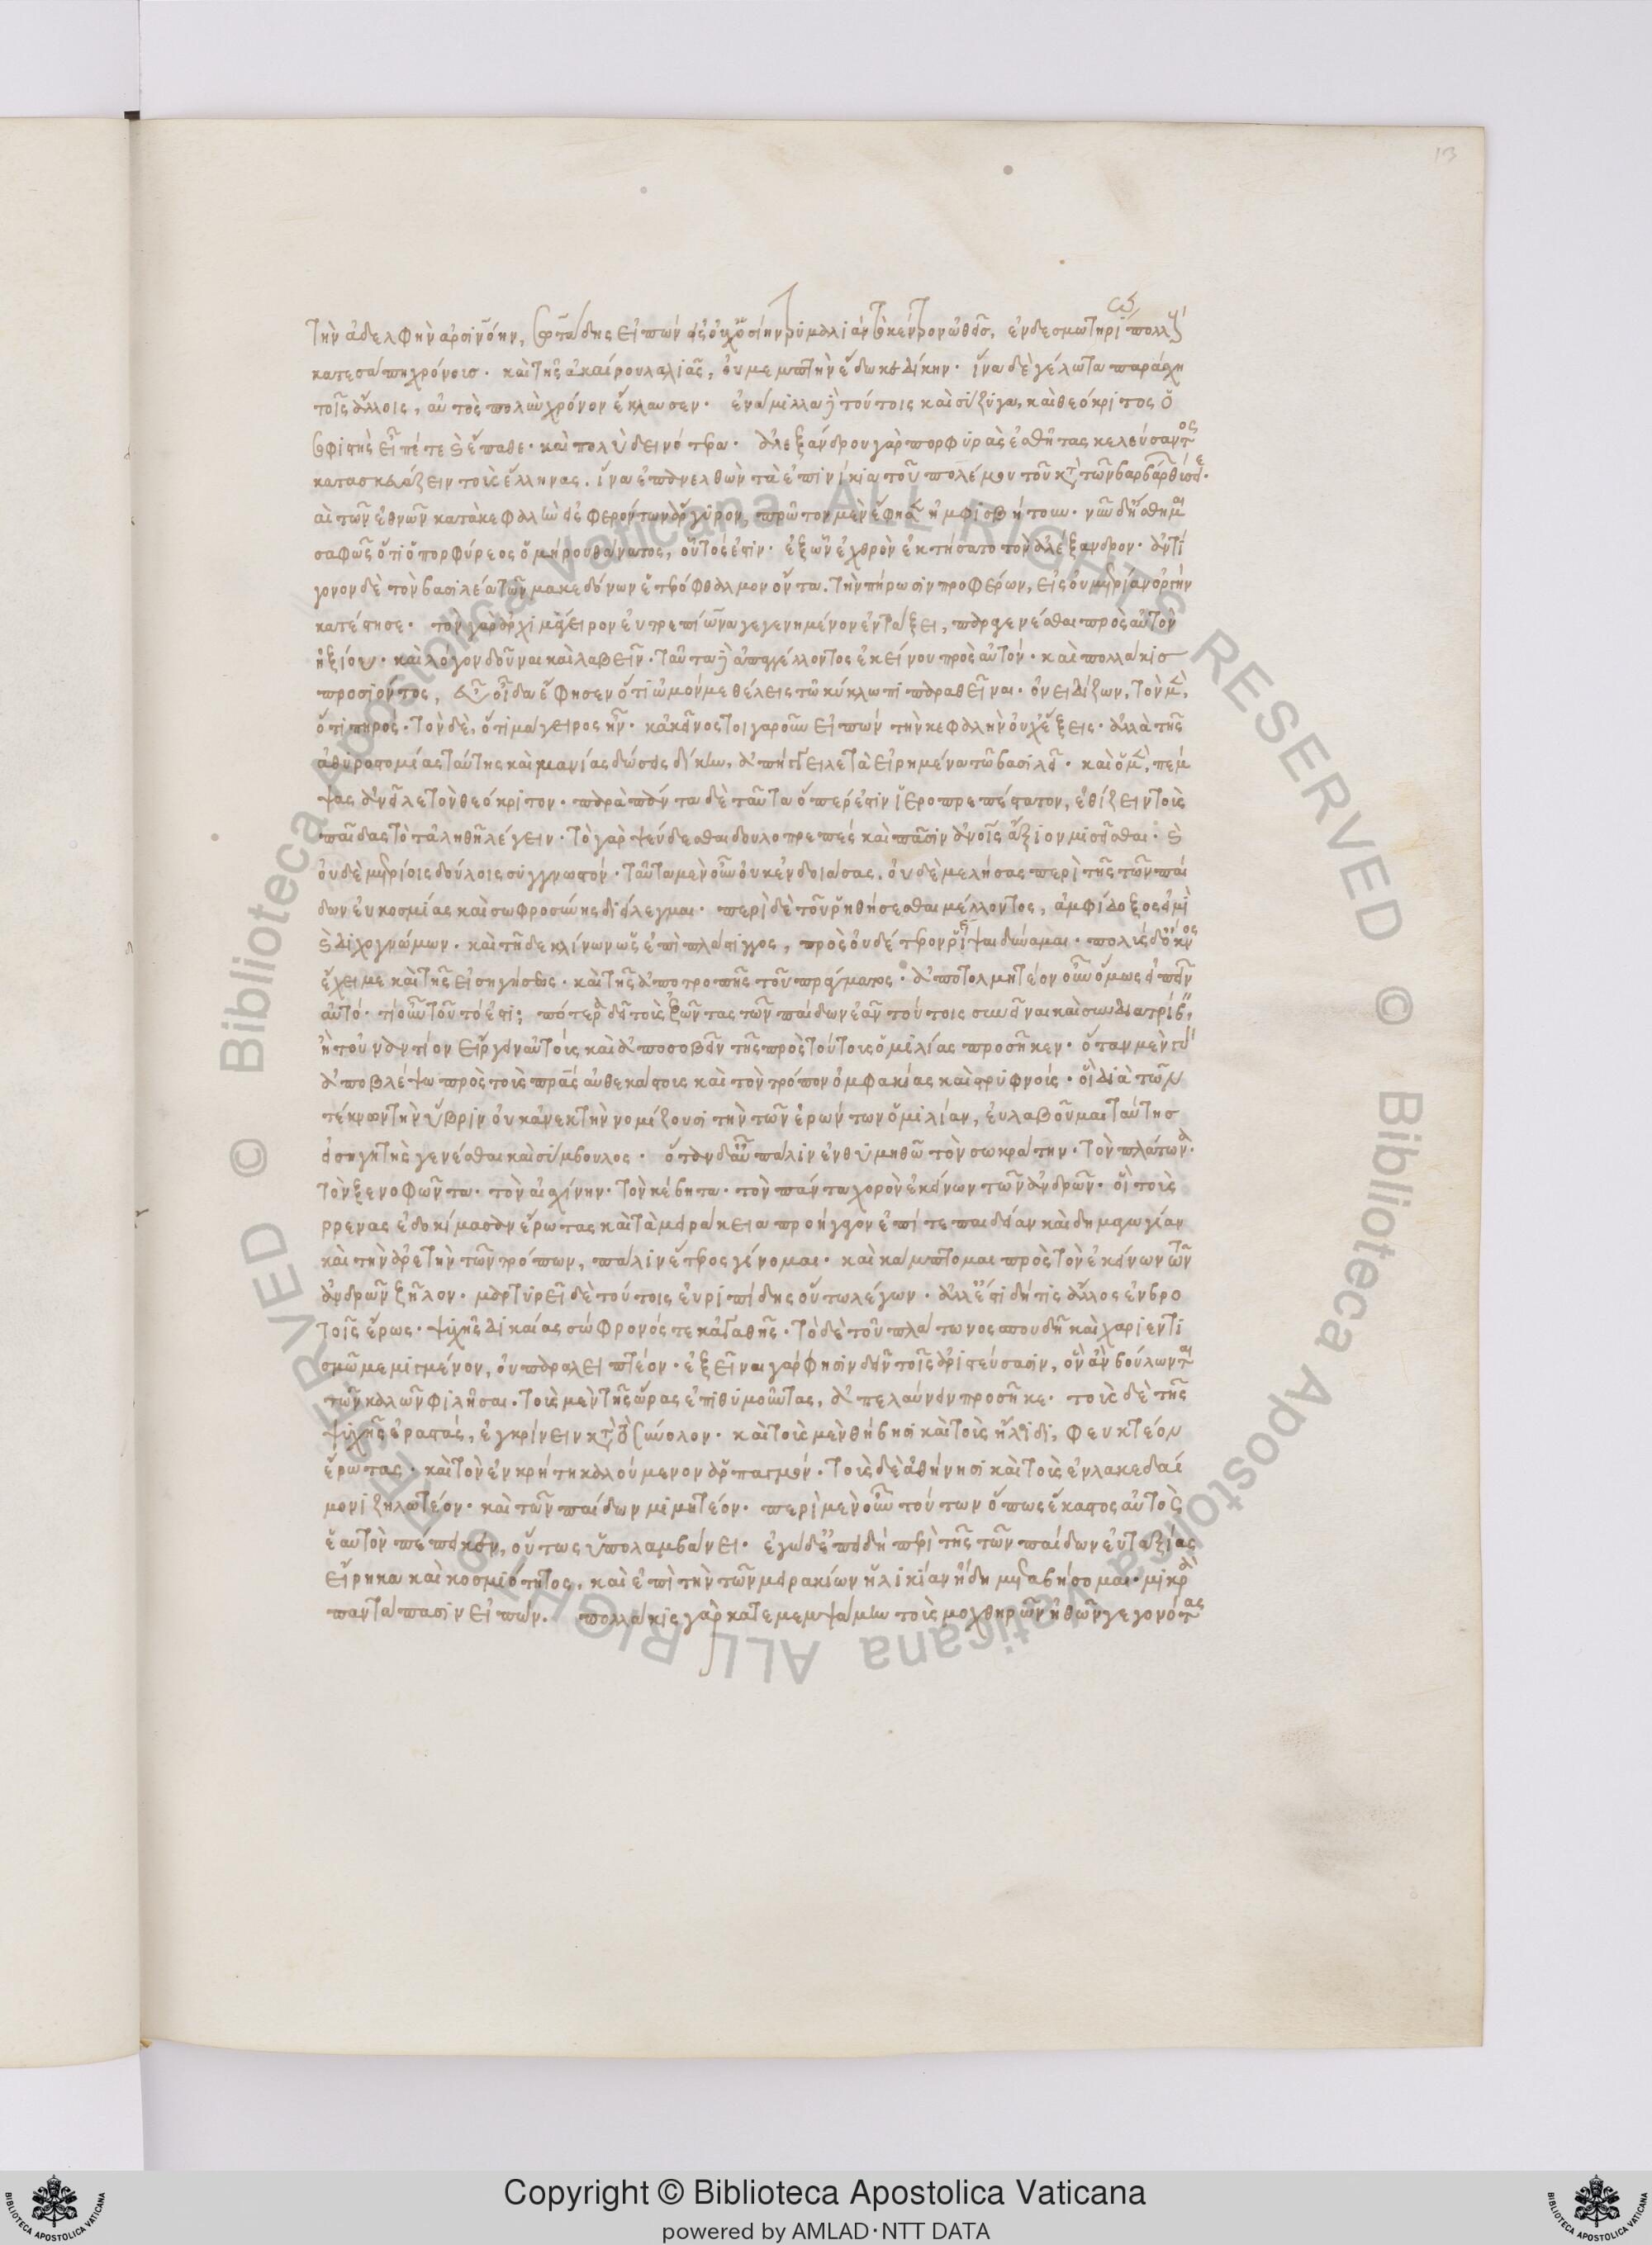 τὴν ἀδελφὴν ἀρσινόην, σωτάδης εἰπὼν εἰς οὐχ ὁσίην τρυμαλιὰν τὸ κέντρον ὠθεῖς, ἐν δεσμωτηρίω πολλοὺς
κατεσάπη χρόνοις. καὶ τῆς ἀκαίρου λαλιᾶς, οὐ μεμπτὴν ἔδωκε δίκην. ἵνα δὲ γέλωτα παράσχη
τοῖς ἄλλοις, αὐτὸς πολὺν χρόνον ἔκλαυσεν. ἐνάμιλλα δὲ τούτοις καὶ σύζυγα, καὶ θεόκριτος ὁ
σοφιστὴς εἶπέ τε καὶ ἔπαθε. καὶ πολὺ δεινότερα. ἀλεξάνδρου γὰρ πορφυρᾶς ἐσθῆτας κελεύσαντος
κατασκευάζειν τοὺς ἕλληνας. ἵνα ἐπανελθὼν τὰ ἐπινίκια τοῦ πολέμου τοῦ κατὰ τῶν βαρβάρων θύσειε.
καὶ τῶν ἐθνῶν κατὰ κεφαλὴν εἰσφερόντων ἄργυρον, πρῶτον μὲν ἔφησεν ἠμφισβήτουν. νῦν δ' ἤσθημαι
σαφῶς ὅτι ὁ πορφύρεος ὁμήρου θάνατος, οὗτός ἐστιν. ἐξ ὧν ἐχθρὸν ἐκτήσατο τὸν ἀλέξανδρον. ἀντί
γονον δὲ τὸν βασιλέα τῶν μακεδόνων ἑτερόφθαλμον ὄντα. τὴν πήρωσιν προφέρων, εἰς οὐ μετρίαν ὀργὴν
κατέστησε. τὸν γὰρ ἀρχιμάγειρον εὐτροπίωνα γεγενημένον ἐν τάξει, παραγενέσθαι πρὸς αὐτὸν
ἠξίου. καὶ λόγον δοῦναι καὶ λαβεῖν. ταῦτα δὲ ἀπαγγέλλοντος ἐκείνου πρὸς αὐτόν. καὶ πολλάκις
προσιόντος, εὖ οἶδα ἔφησεν ὅτι ὠμόν με θέλεις τῶ κύκλωπι παραθεῖναι. ὀνειδίζων, τὸν μὲν,
ὅτι πηρός. τὸν δὲ, ὅτι μάγειρος ἦν. κἀκεῖνος τοιγαροῦν εἰπὼν τὴν κεφαλὴν οὐχ ἕξεις. ἀλλὰ τῆς
ἀθυροστομίας ταύτης καὶ μανίας δώσεις δίκην, ἀπήγγειλε τὰ εἰρημένα τῶ βασιλεῖ. καὶ ὁ μὲν, πέμ
ψας ἀνεῖλε τὸν θεόκριτον. παρὰ πάντα δὲ ταῦτα ὅπερ ἐστὶν ἱεροπρεπέστατον, ἐθίζειν τοὺς
παῖδας τὸ τἀληθῆ λέγειν. τὸ γὰρ ψεύδεσθαι δουλοπρεπὲς καὶ πᾶσιν ἀνοῖς ἄξιον μισεῖσθαι. καὶ
οὐδὲ μετρίοις δούλοις συγγνωστόν. ταῦτα μὲν οὖν οὐκ ἐνδοιάσας. οὐδὲ μελήσας περὶ τῆς τῶν παί
δων εὐκοσμίας καὶ σωφροσύνης διείλεγμαι. περὶ δὲ τοῦ ῥηθήσεσθαι μέλλοντος, ἀμφίδοξος εἰμὶ
καὶ διχογνώμων. καὶ τῆδε κλίνων ὡς ἐπὶ πλάστιγγος, πρὸς οὐδέτερον ῥέψαι δύναμαι. πολὺς δ' ὄκνος
ἔχει με καὶ τῆς εἰσηγήσεως. καὶ τῆς ἀποτροπῆς τοῦ πράγματος. ἀποτολμητέον οὖν ὅμως εἰπεῖν
αὐτό. τί οὖν τοῦτό ἐστι; πότερα δεῖ τοὺς ἐρῶντας τῶν παίδων ἐᾶν τούτοις συνεῖναι καὶ συνδιατρίβειν,
ἢ τοὐναντίον εἴργειν αὐτοὺς καὶ ἀποσοβεῖν τῆς πρὸς τούτοις ὁμιλίας προσῆκεν. ὅταν μὲν γὰρ
ἀποβλέψω πρὸς τοὺς πρας αὐθεκάστους καὶ τὸν τρόπον ὀμφακίας καὶ στρυφνούς. οἳ διὰ τῶν
τέκνων τὴν ὕβριν οὐκ ἀνεκτὴν νομίζουσι τὴν τῶν ἐρώντων ὁμιλίαν, εὐλαβοῦμαι ταύτης
εἰσηγητὴς γενέσθαι καὶ σύμβουλος. ὅταν δ' αὖ πάλιν ἐνθυμηθῶ τὸν σωκράτην. τὸν πλάτωνα.
τὸν ξενοφῶντα. τὸν αἰσχίνην. τὸν κέβητα. τὸν πάντα χορὸν ἐκείνων τῶν ἀνδρῶν. οἳ τοὺς
ρρενας ἐδοκίμασαν ἔρωτας καὶ τὰ μειράκεια προήγαγον ἐπί τε παιδείαν καὶ δημαγωγίαν
καὶ τὴν ἀρετὴν τῶν τρόπων, πάλιν ἕτερος γίνομαι. καὶ κάμπτομαι πρὸς τὸν ἐκείνων τῶν
ἀνδρῶν ζῆλον. μαρτυρεῖ δὲ τούτοις εὐριπίδης οὕτω λέγων. ἀλλ' ἔστι δή τις ἄλλος ἐν βρο
τοῖς ἔρως. ψυχῆς δικαίας σώφρονός τε κἀγαθῆς. τὸ δὲ τοῦ πλάτωνος σπουδῆ καὶ χαριεντι
σμῶ μεμιγμένον, οὐ παραλειπτέον. ἐξεῖναι γάρ φησιν δεῖν τοῖς ἀριστεύσασιν, ὃν ἂν βούλωνται
τῶν καλῶν φιλῆσαι. τοὺς μὲν τῆς ὥρας ἐπιθυμοῦντας, ἀπελαύνειν προσῆκε. τοὺς δὲ τῆς
ψυχῆς ἐραστὰς, ἐγκρίνειν κατὰ τὸ σύνολον. καὶ τοὺς μὲν θήβησι καὶ τοὺς ἤλιδι, φευκτέον
ἔρωτας. καὶ τὸν ἐν κρήτη καλούμενον ἁρπαγμόν. τοὺς δὲ ἀθήνησι καὶ τοὺς ἐν λακεδαί
μονι ζηλωτέον. καὶ τῶν παίδων μιμητέον. περὶ μὲν οὖν τούτων ὅπως ἕκαστος αὐτὸς
ἑαυτὸν πεπεικὼν, οὕτως ὑπολαμβάνει. ἐγὼ δ' ἐπειδὴ περὶ τῆς τῶν παίδων εὐταξίας
εἴρηκα καὶ κοσμιότητος, καὶ ἐπὶ τὴν τῶν μειρακίων ἡλικίαν ἤδη μεταβήσομαι. μικρὰ
παντάπασιν εἰπών. πολλάκις γὰρ κατεμεμψάμην τοὺς μοχθηρῶν ἠθῶν γεγονότας
13
Copyright © Biblioteca Apostolica Vaticana
powered by AMLAD·NTT DATA
© Biblioteca Apostolica Vaticana ALL RIGHTS RESERVED